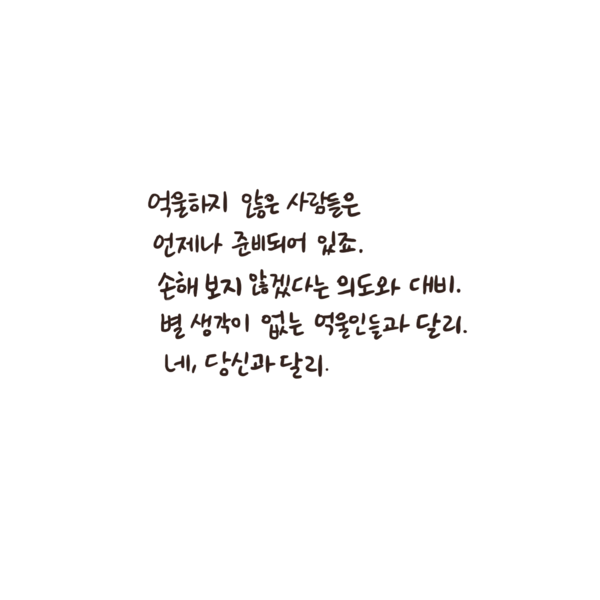 억울하지 않은 사람들은
언제나 준비되어 있죠.
손해 보지 않겠다는 의도와 대비.
별 생각이 없는 억울인들과 달리.
네, 당신과 달리.